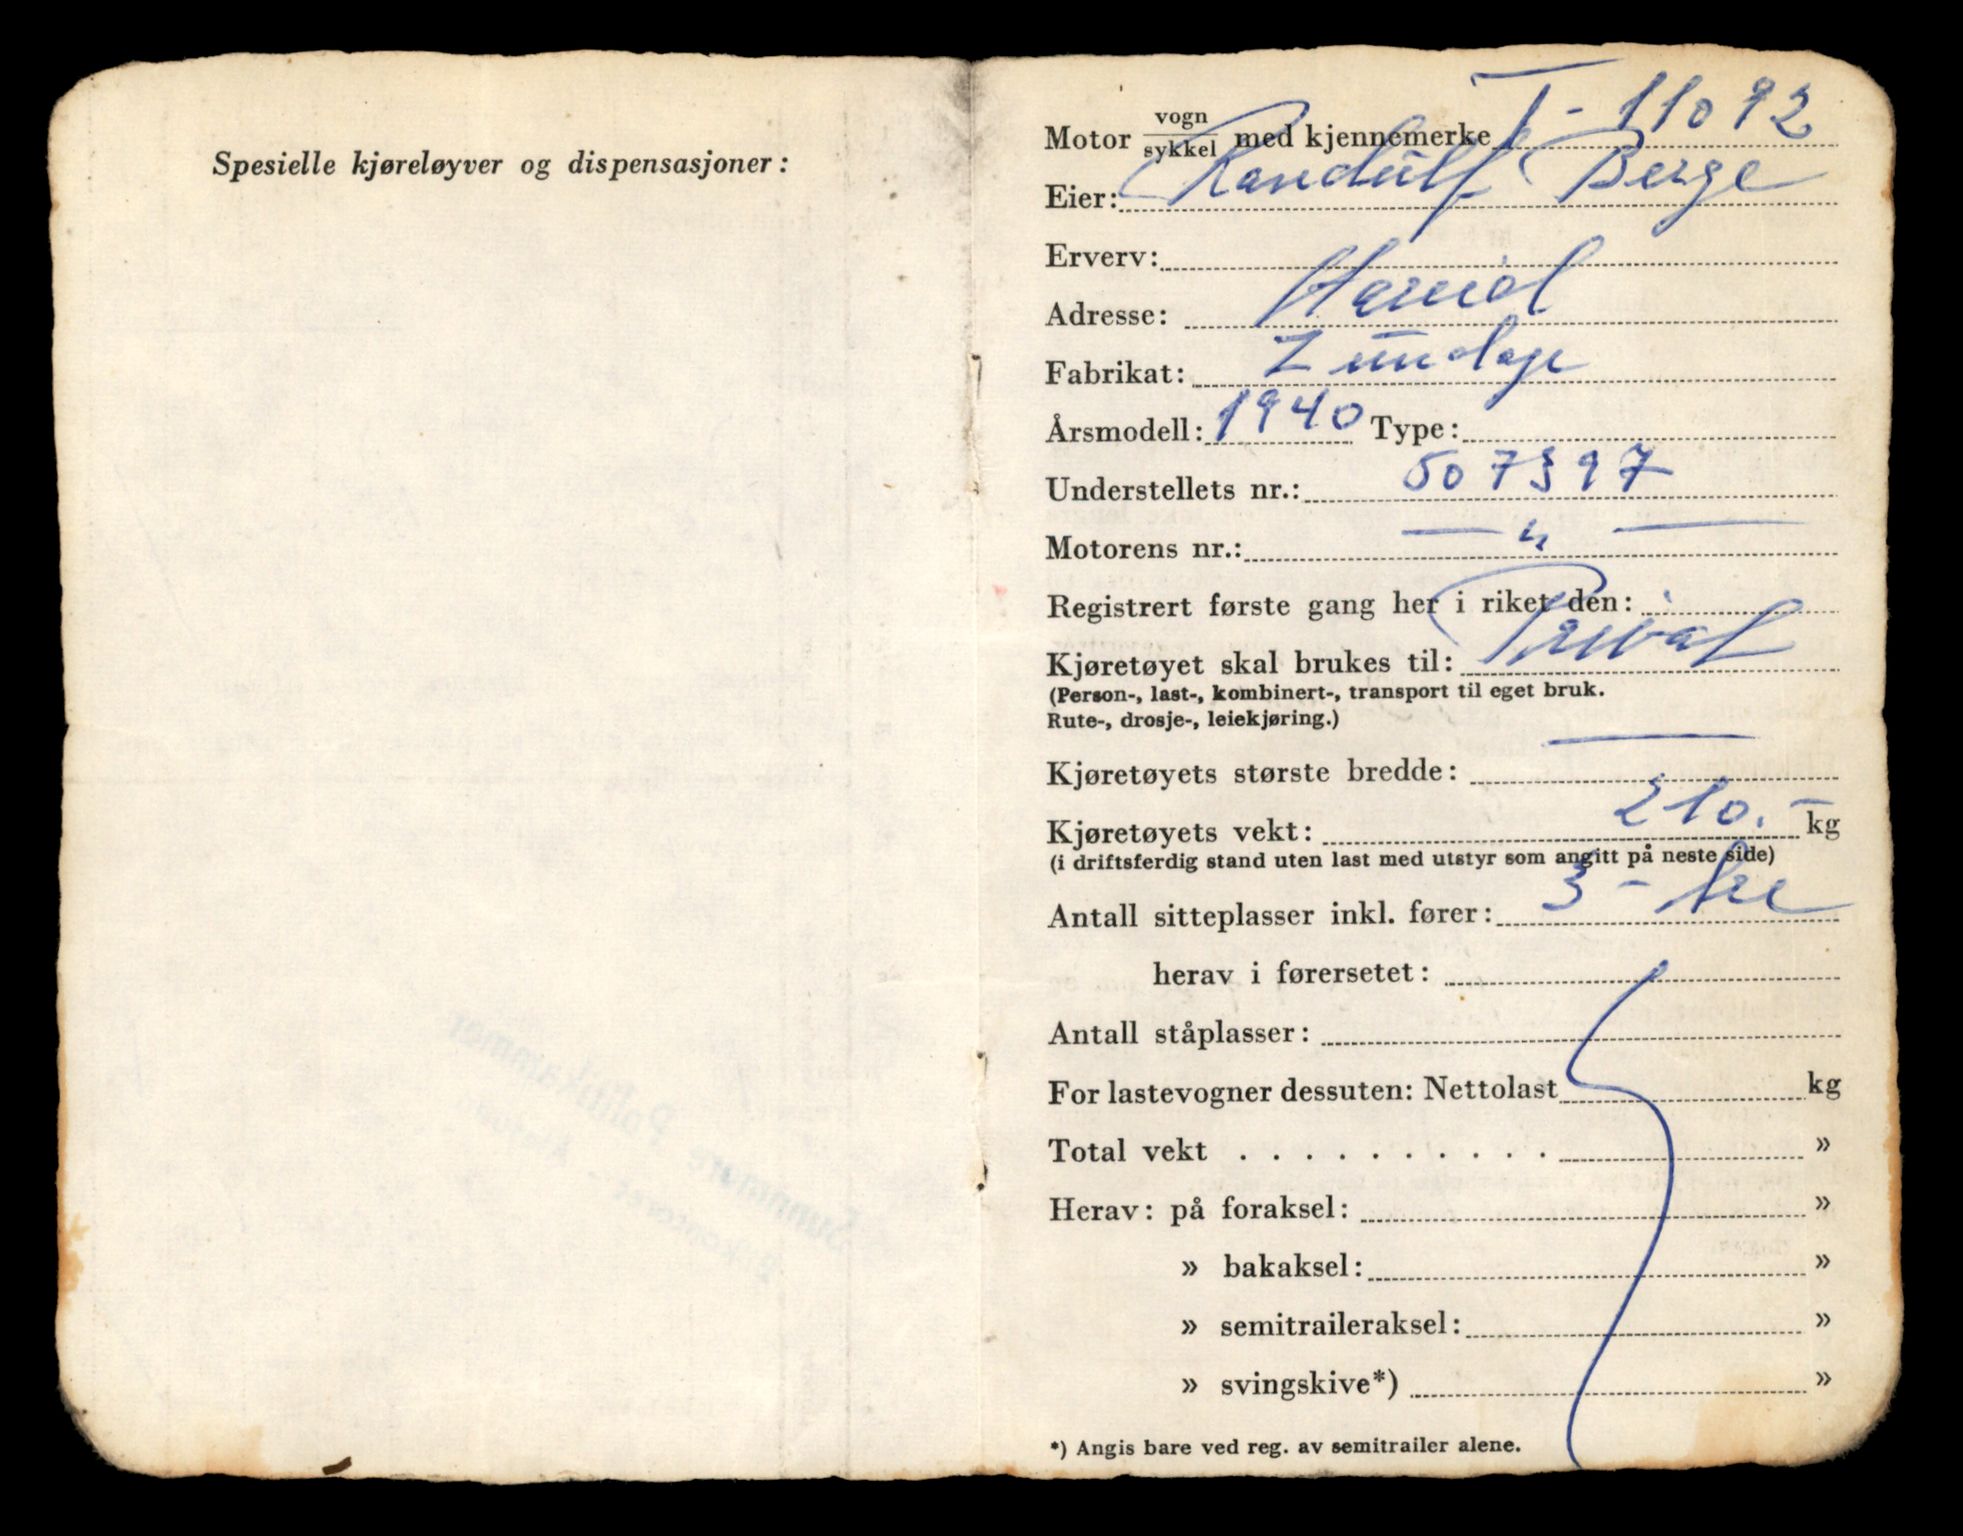 Spesielle kjøreløyver og dispensasjoner:
Motor vogn/sykkel med kjennemerke T-11092
Eier: Randulf Berge
Ererv:
Adresse: Hareid
Fabrikat: Zundap
Årsmodell: 1940 Type:
Understellets nr.: 507397
Motorens nr.: — " —
Registrert første gang her i riket den:
Kjøretøyet skal brukes til: Privat
(Person-, last-, kombinert-, transport til eget bruk.
Rute-, drosje-, leiekjøring.)
Kjøretøyets største bredde: —
Kjøretøyets vekt: 210.- kg
(i driftsferdig stand uten last med utstyr som angitt på neste side)
Antall sitteplasser inkl. fører: 3 - tre
herav i førersetet:
Antall ståplasser:
For lastevogner dessuten: Nettolast kg
Total vekt . . . . . . . . . . »
Herav: på foraksel: »
» bakaksel: »
» semitraileraksel: »
» svingskive*) »
*) Angis bare ved reg. av semitrailer alene.